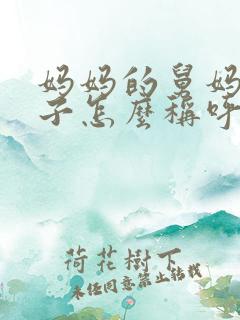 妈妈的舅妈
子怎麼稱呼
荷花樹下
未经同意禁止转载